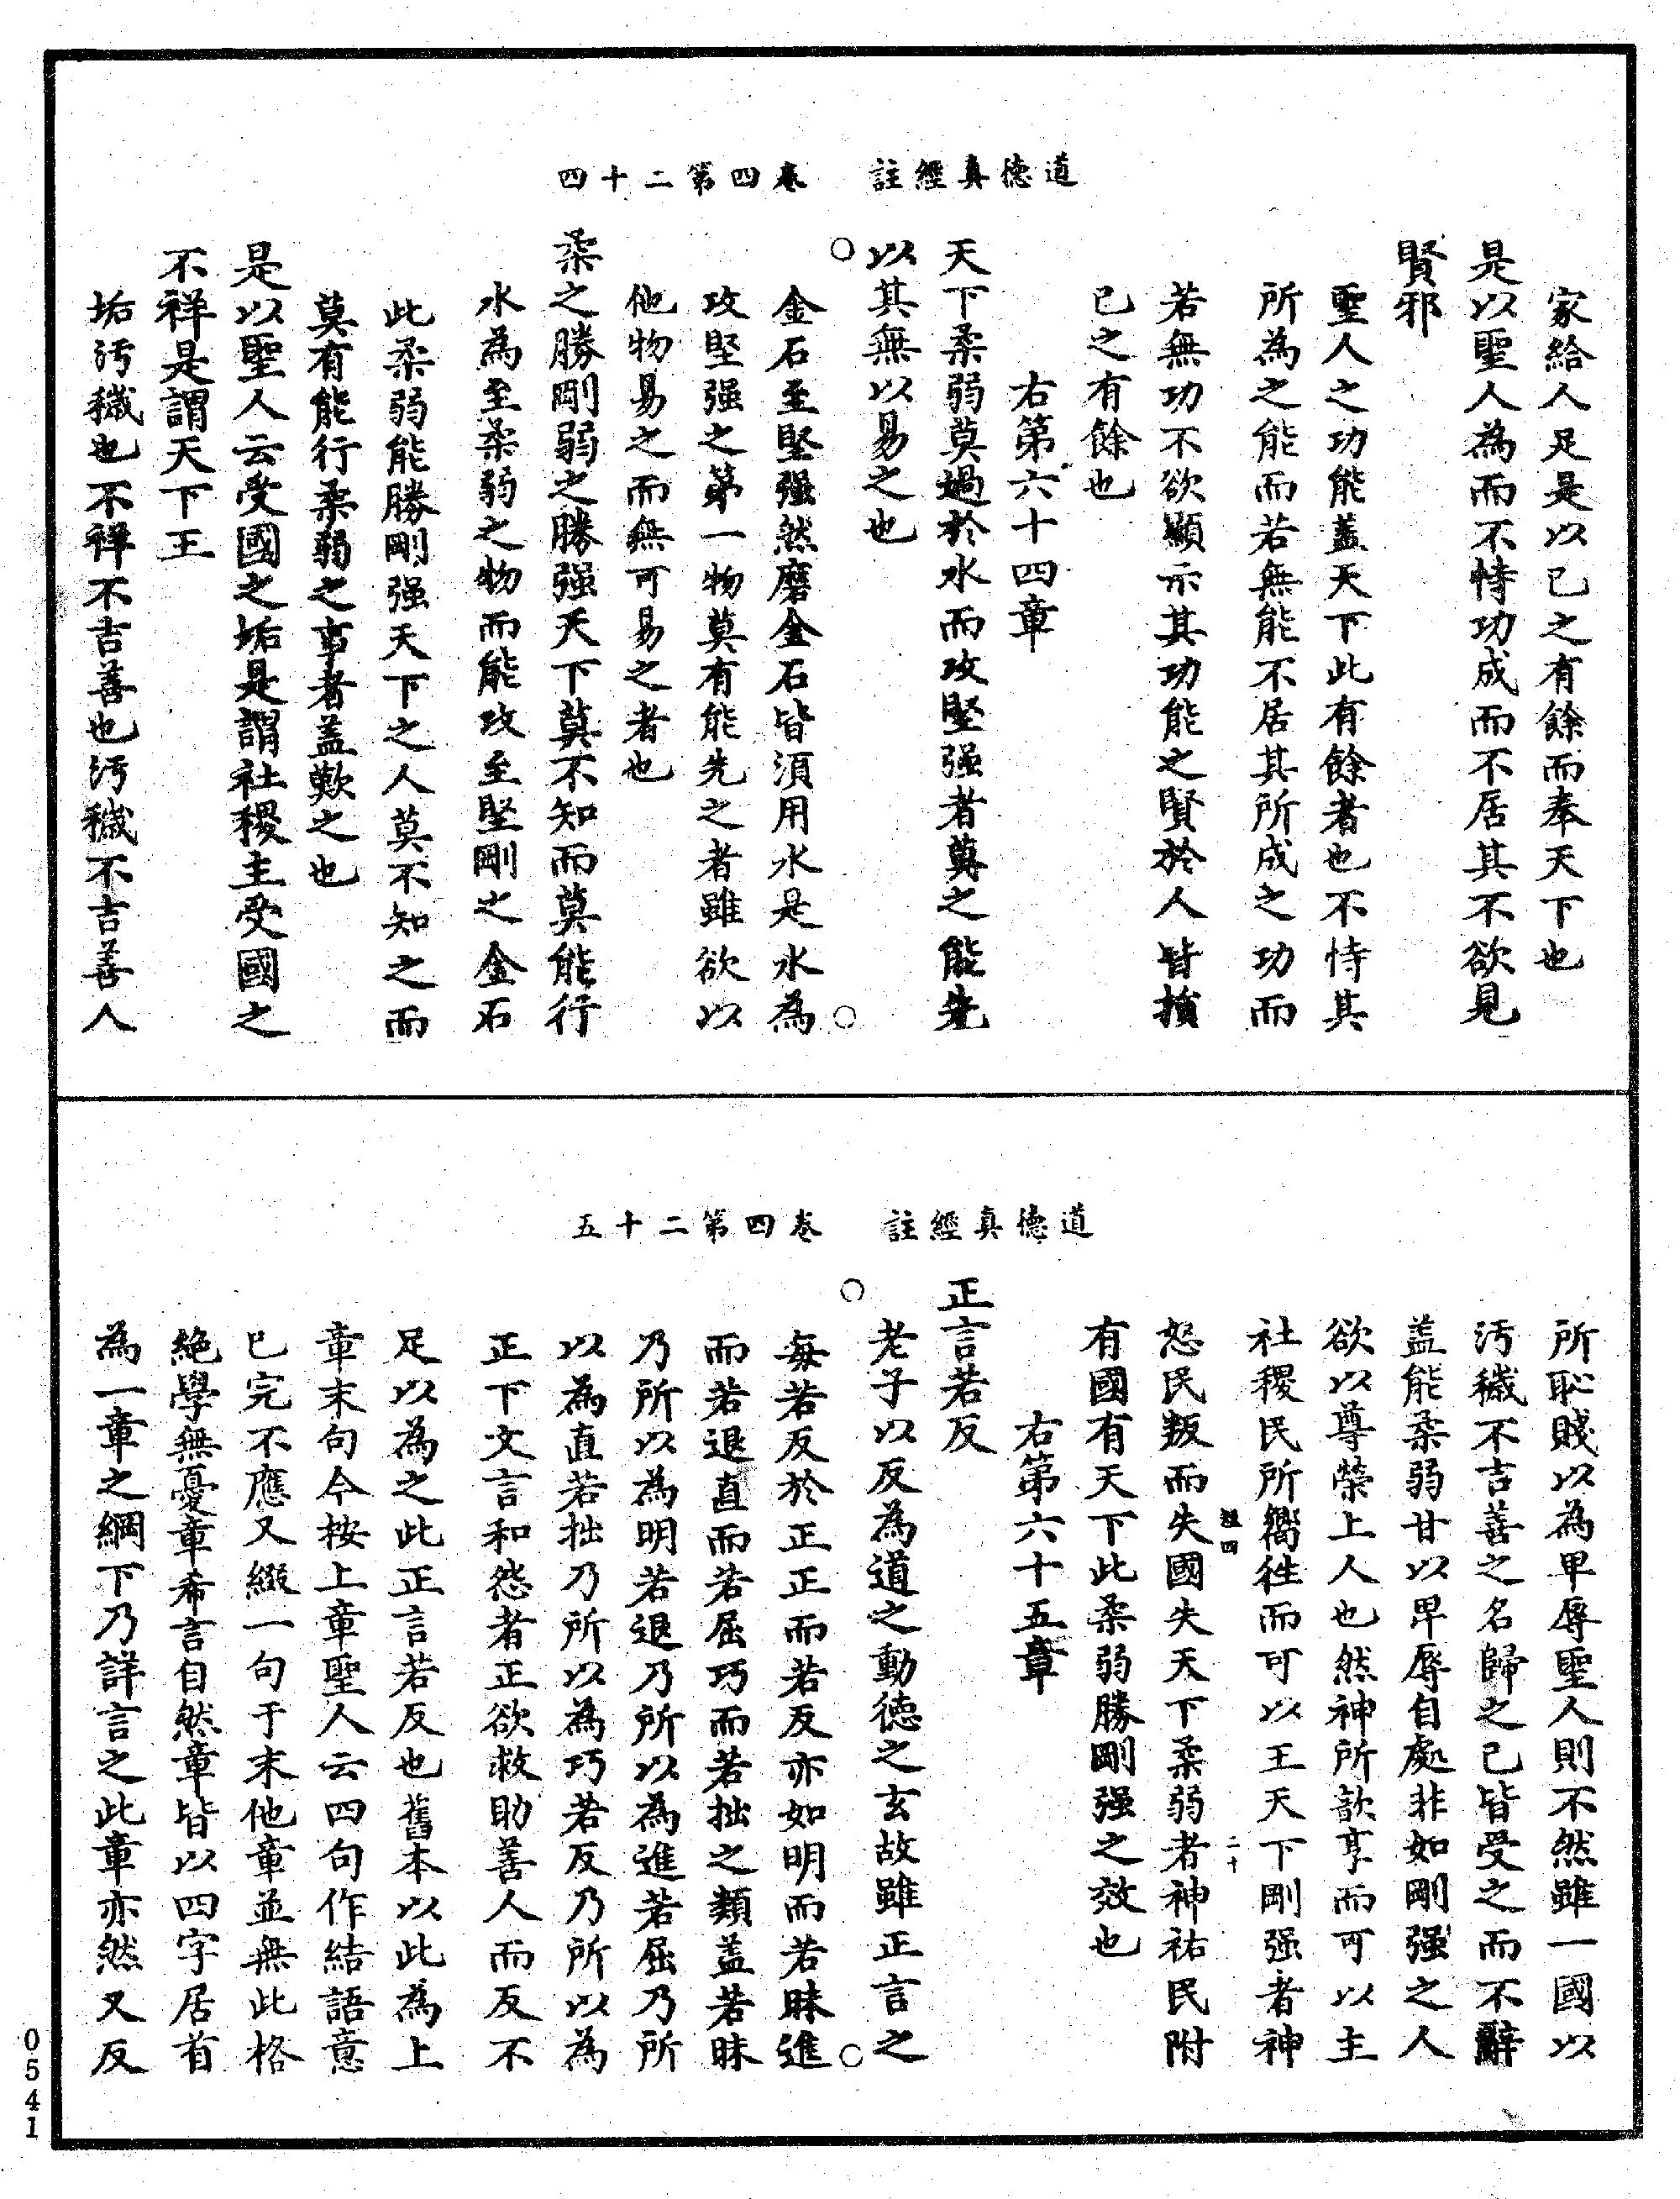 道德真經註　卷四第二十四
家給人足是以已之有餘而奉天下也
是以聖人為而不恃功成而不居其不欲見
賢邪
聖人之功能蓋天下此有餘者也不恃其
所為之能而若無能不居其所成之功而
若無功不欲顯示其功能之賢於人皆損
已之有餘也
右第六十四章
天下柔弱莫過於水而攻堅强者莫之能先
以其無以易之也
○　○
金石至堅强然磨金石皆須用水是水為
攻堅强之第一物莫有能先之者雖欲以
他物易之而無可易之者也
柔之勝剛弱之勝强天下莫不知而莫能行
水為至柔弱之物而能攻至堅剛之金石
此柔弱能勝剛强天下之人莫不知之而
莫有能行柔弱之事者蓋歎之也
是以聖人云受國之垢是謂社稷主受國之
不祥是謂天下王
垢污穢也不祥不吉善也污穢不吉善人
道德真經註　卷四第二十五
所恥賤以為卑辱聖人則不然雖一國以
污穢不吉善之名歸之已皆受之而不辭
蓋能柔弱甘以卑辱自處非如剛强之人
欲以尊榮上人也然神所歆享而可以主
社稷民所嚮往而可以王天下剛强者神
二十
怒民叛而失國失天下柔弱者神祐民附
有國有天下此柔弱勝剛强之效也
右第六十五章
正言若反
○　○
老子以反為道之動德之玄故雖正言之
每若反於正正而若反亦如明而若昧進
而若退直而若屈巧而若拙之類蓋若昧
乃所以為明若退乃所以為進若屈乃所
以為直若拙乃所以為巧若反乃所以為
正下文言和怨者正欲救助善人而反不
足以為之此正言若反也舊本以此為上
章末句今按上章聖人云四句作結語意
已完不應又綴一句于末他章並無此格
絕學無憂章希言自然章皆以四字居首
為一章之綱下乃詳言之此章亦然又反
0541